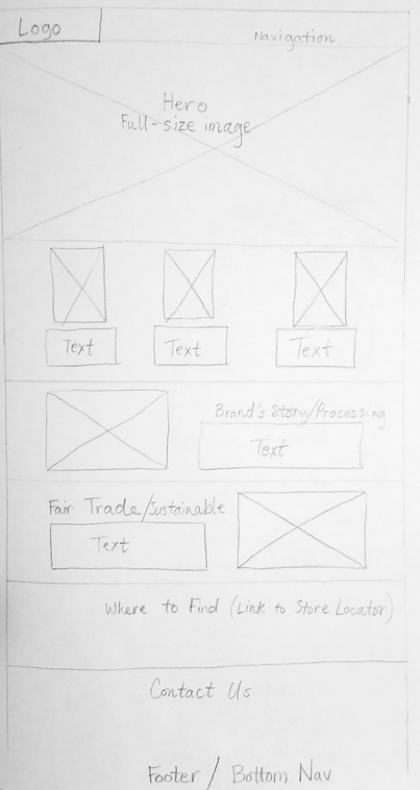 Logo
Navigation
Hero
Full-size image
Text
Text
Text
Brand's Story/Processing
Text
Fair Trade/Sustainable
Text
Where to Find (Link to Store Locator)
Contact Us
Footer / Bottom Nav